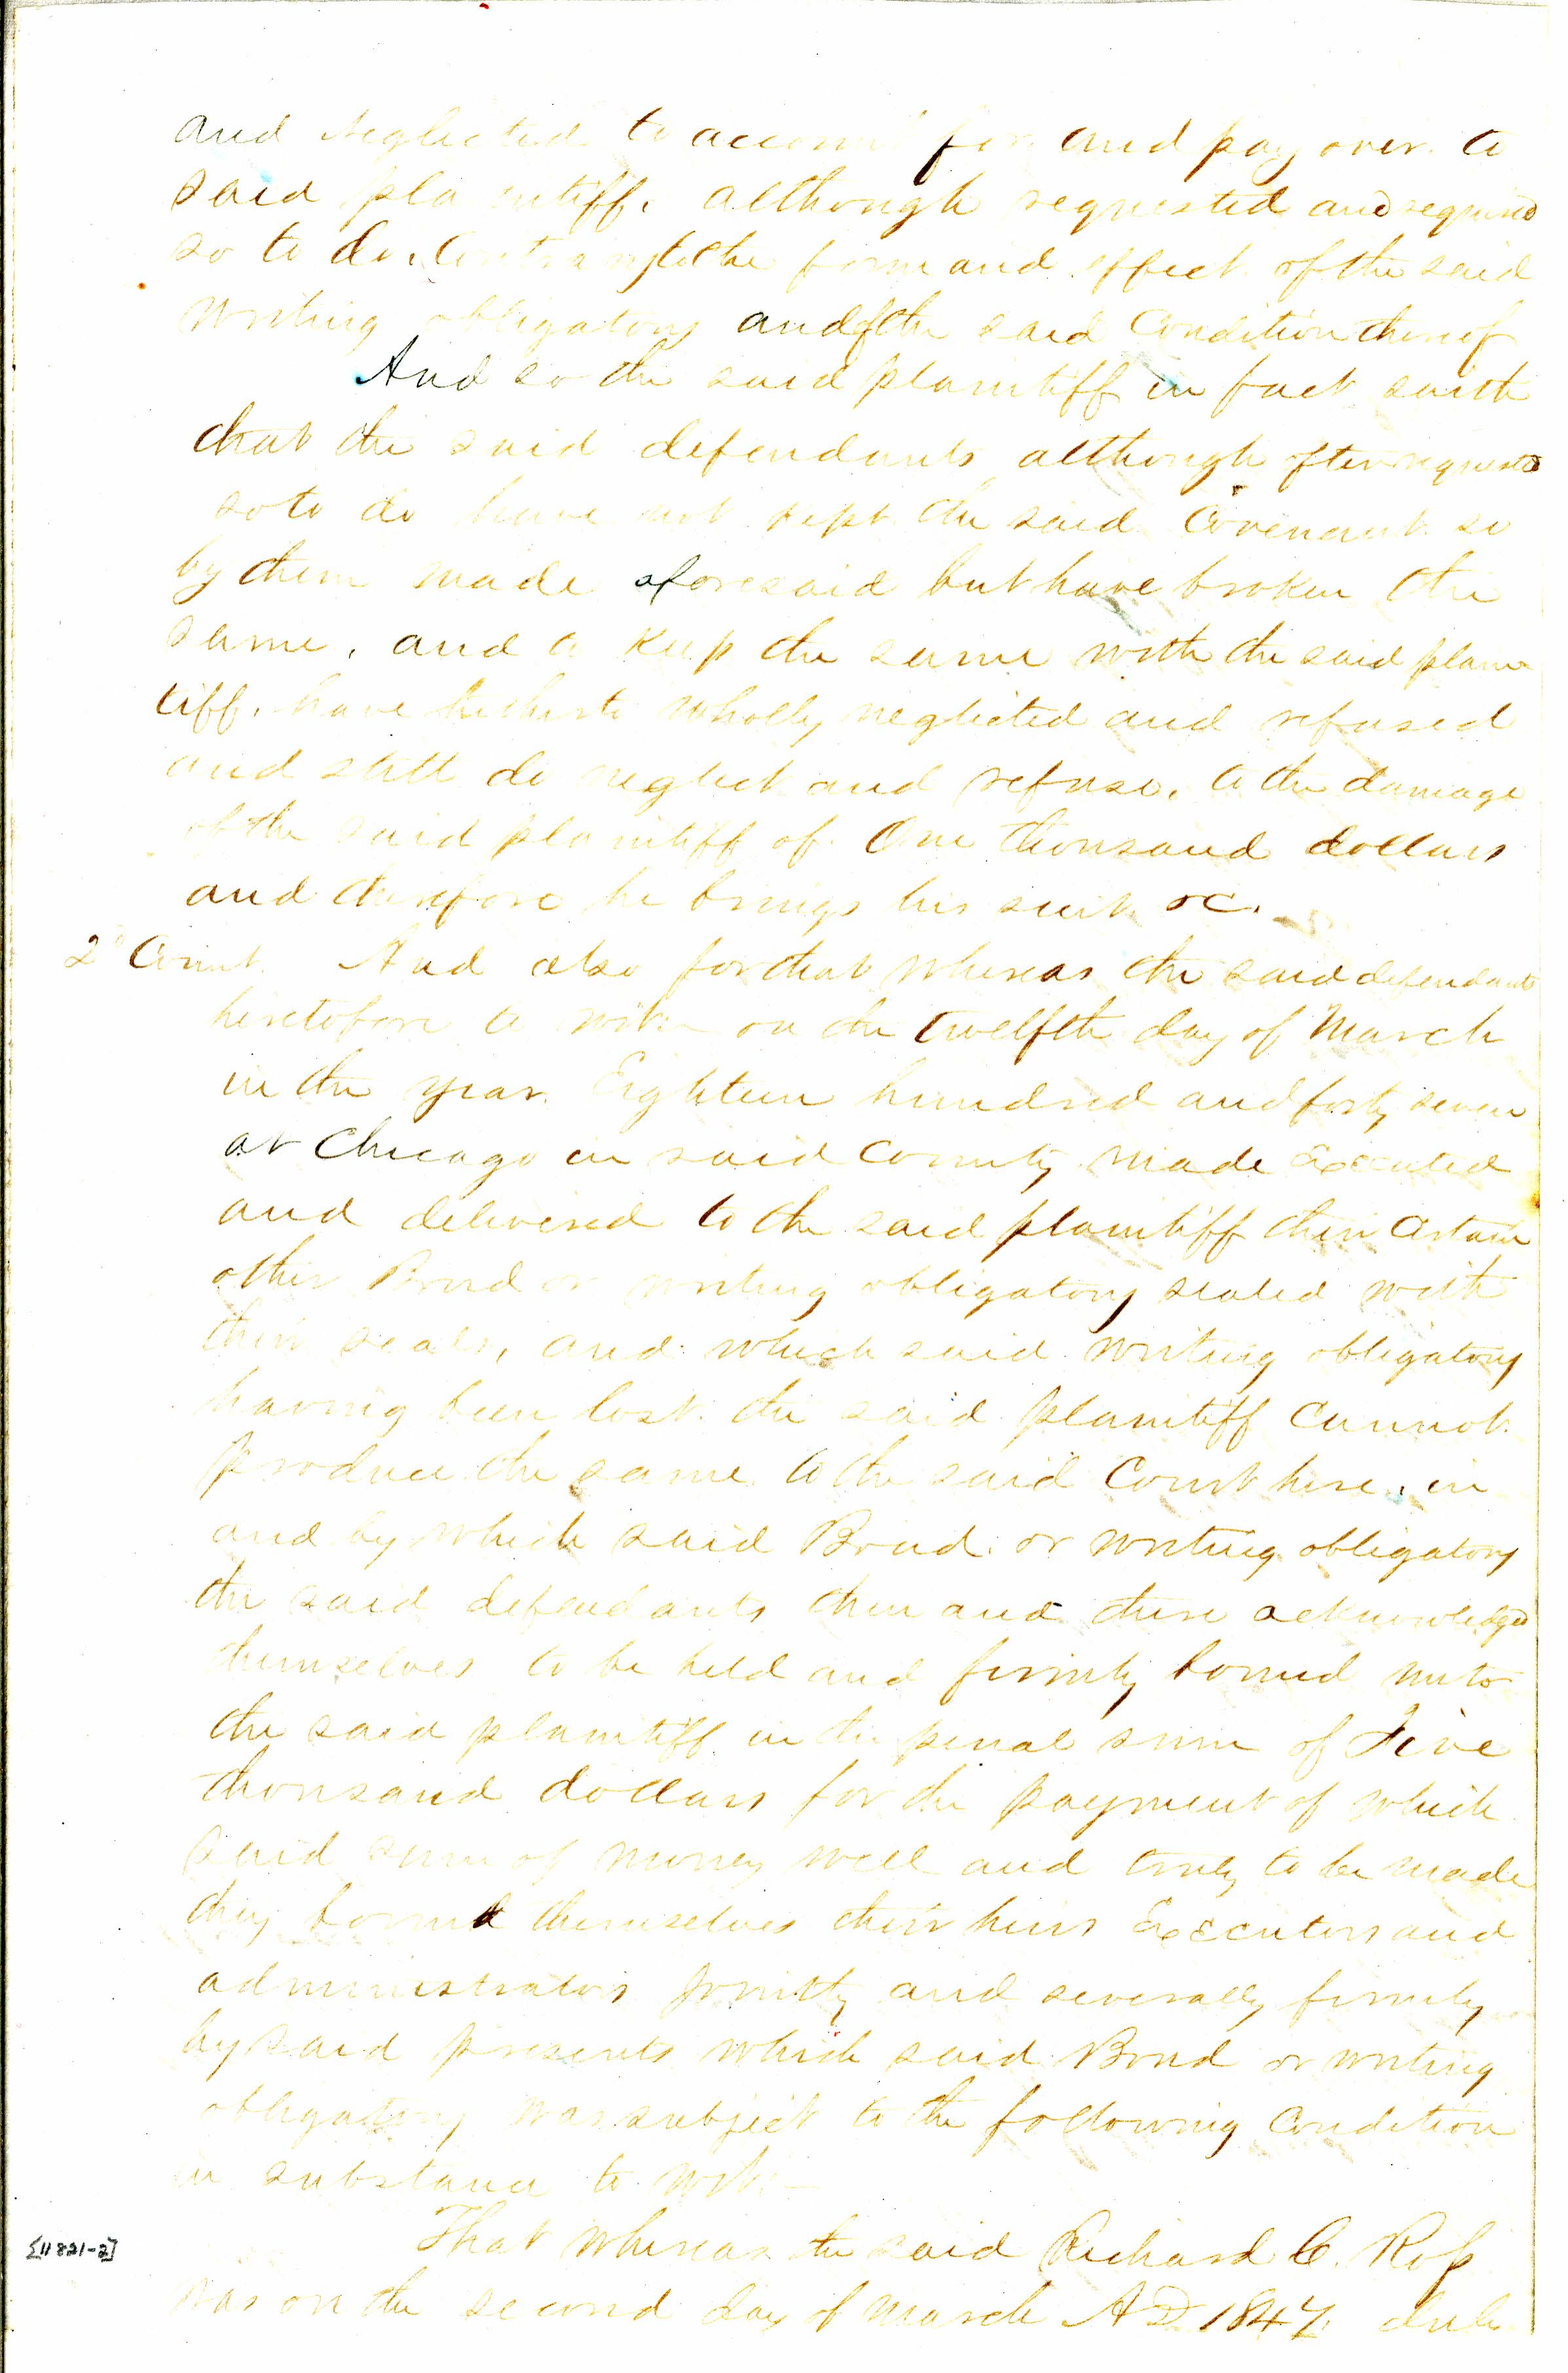 and neglected to account for and pay over to
said plaintiff, although requested and required
so to do, Contrary to the form and effect of the said
writing obligatory and of the said Condition thereof
And so the said plaintiff in fact saith
that the said defendants although often requested
so to do have not kept the said Covenant so
by them made aforesaid but have broken the
same, and to keep the same with the said plain
tiff, have hitherto wholly neglected and refused
and still do neglect and refuse, to the damage
of the said plaintiff of One thousand dollars
and therefore he brings his suit &c.
2d Count. And also for that whereas the said defendants
heretofore to wit— on the twelfth day of March
in the year Eighteen hundred and forty seven
at Chicago in said County made Executed
and delivered to the said plaintiff their certain
other Bond or writing obligatory sealed with
their seals, and which said writing obligatory
having been lost the said plaintiff cannot
produce the same to the said Court here, in
and by which said Bond or writing obligatory
the said defendants then and there acknowledged
themselves to be held and firmly bound unto
the said plaintiff in the penal sum of Five
thousand dollars for the payment of which
said sum of money well and truly to be made
they bound themselves their heirs Executors and
administrators jointly and severally firmly
by said presents which said Bond or writing
obligatory was subject to the following Condition
in substance to wit—
That whereas the said Richard C. Ross
was on the second day of March A D 1847 duly
[11821-2]